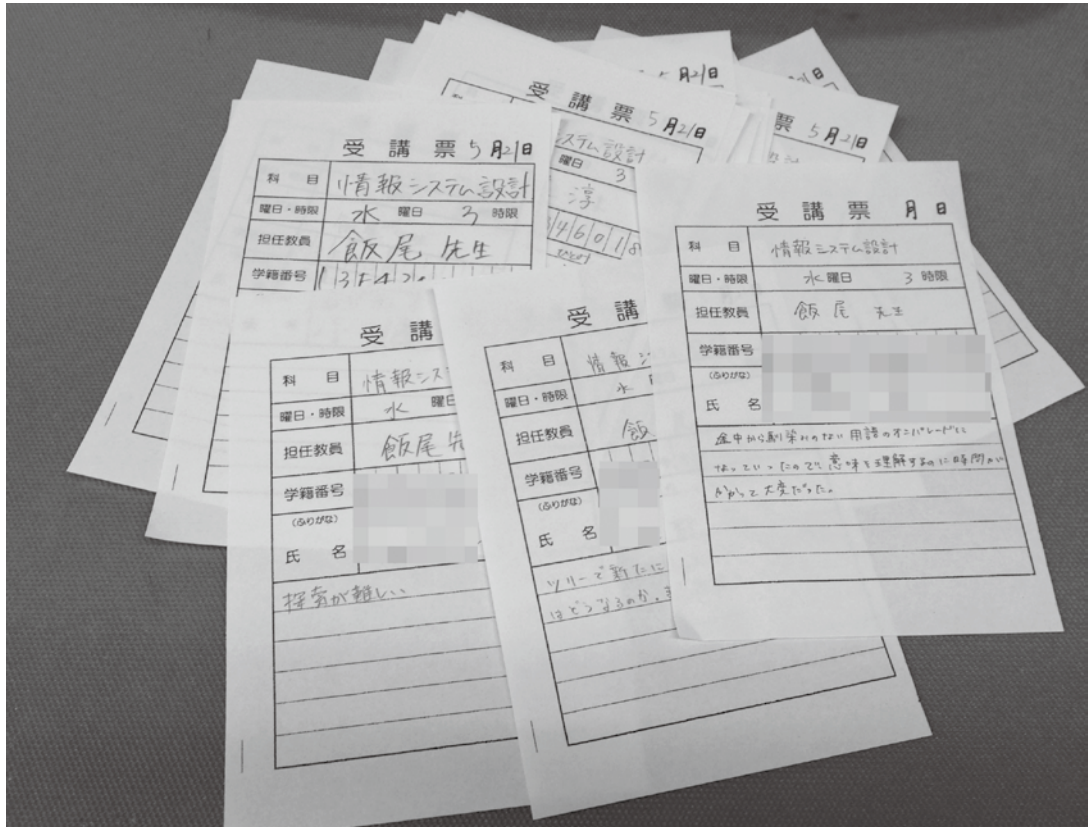 5月21日
21日
受講票 5月21日
システム設計
曜日 3
淳
4 6 0 1 8
票 5月21日
受講票 5月21日
科目 情報システム設計
曜日・時限 水曜日 3時限
担任教員 飯尾 先生
学籍番号 1 3 5 4 2
受講票 月日
科目 情報システム設計
曜日・時限 水曜日 3時限
担任教員 飯尾 先生
学籍番号
(ふりがな)
氏名
途中から馴染みのない用語のオンパレードに
なっていったので、意味を理解するのに時間が
かかって大変だった。
受講
科目 情報シス
曜日・時限 水 曜日
担任教員 飯尾 先
学籍番号
(ふりがな)
氏名
探索が難しい
受講
科目 情報シ
曜日・時限 水
担任教員 飯
学籍番号
(ふりがな)
氏名
ツリーで新たに
はどうなるのか。